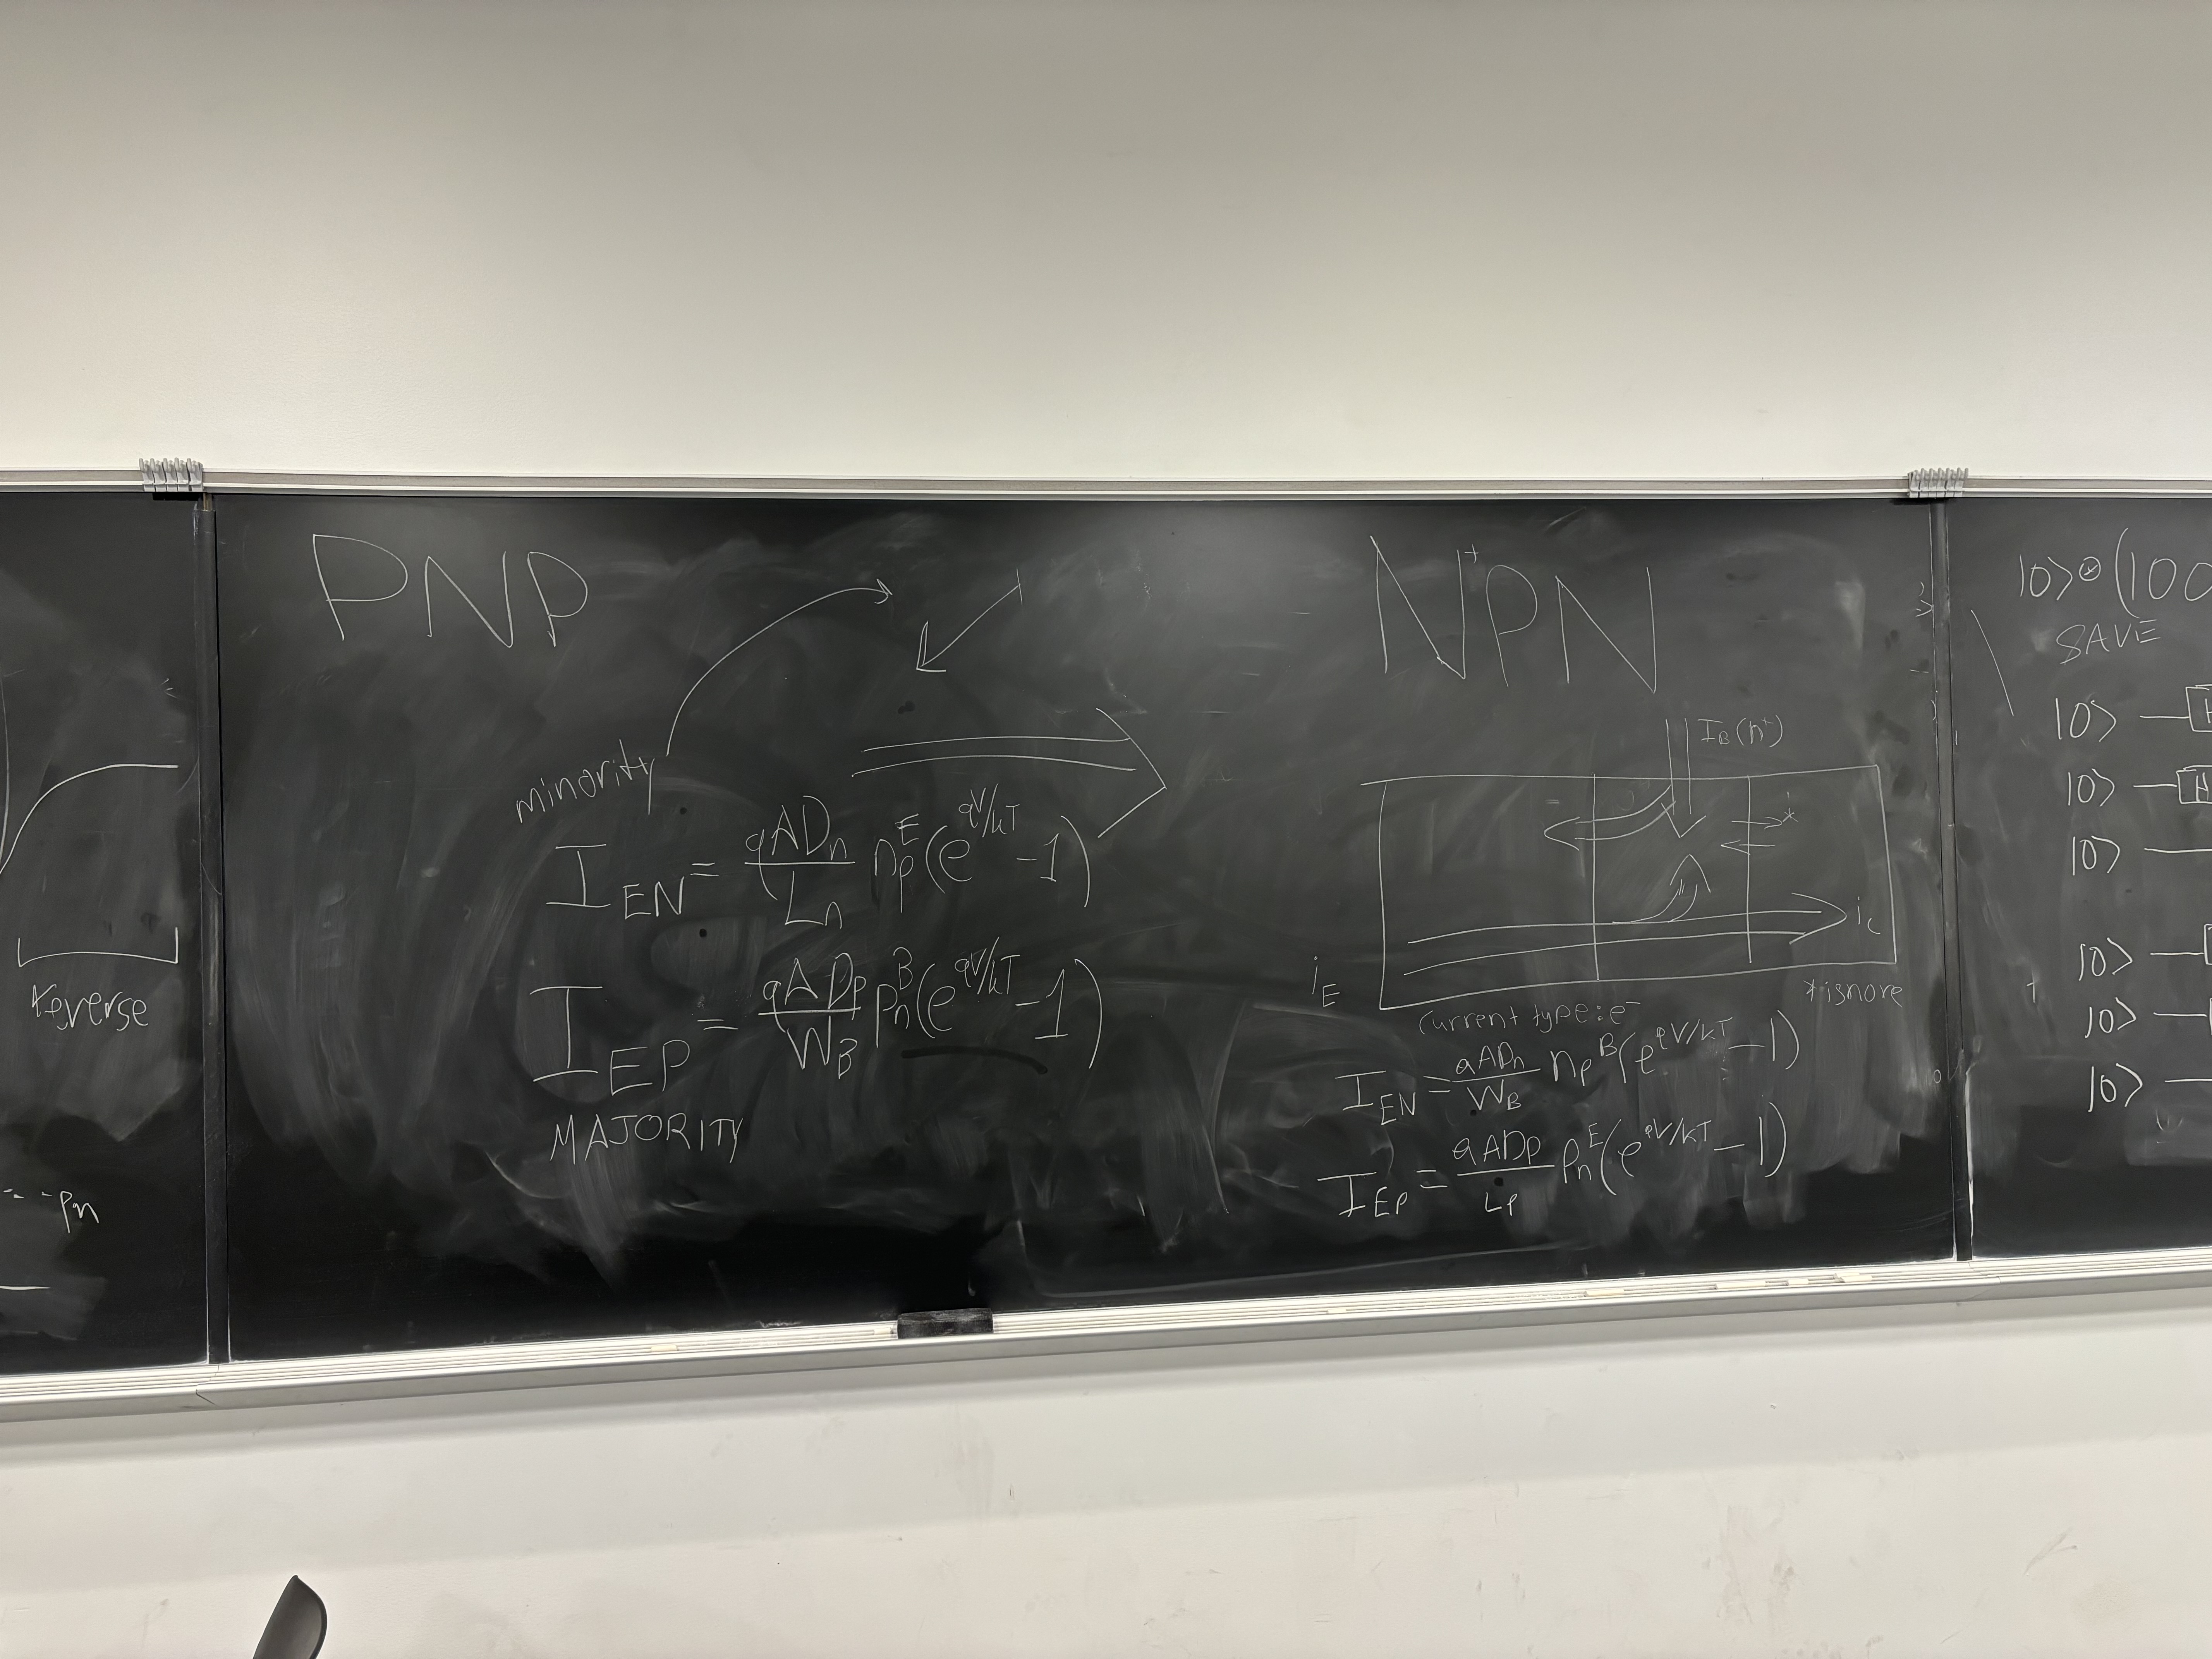 reverse
- - - Pn
PNP
minority
I_EN = qADn/Ln n_p^E (e^{qV/kT} - 1)
I_EP = qADp/W_B p_n^B (e^{qV/kT} - 1)
MAJORITY
N⁺PN
I_B (h⁺)
-
*
i_c
i_E
*ignore
current type: e⁻
I_EN = qADn/W_B n_p^B (e^{qV/kT} - 1)
I_EP = qADp/L_p p_n^E (e^{qV/kT} - 1)
|0>⊗(|00
SAVE
|0> H
|0> H
|0>
|0>
|0>
|0>